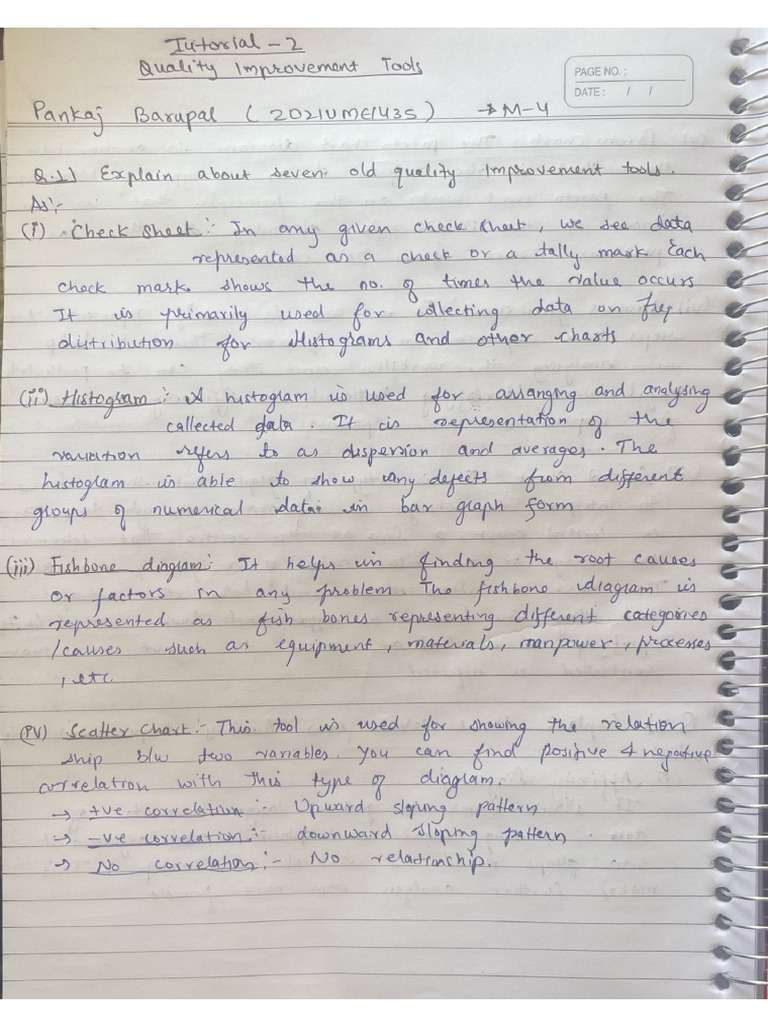 Tutorial - 2
Quality Improvement Tools
PAGE NO. :
DATE : / /
Pankaj Barupal (2021UME1435) → M-4
Q.1) Explain about seven old quality improvement tools.
As:-
(i) Check Sheet :- In any given check sheet, we see data
represented as a check or a tally mark. Each
check mark shows the no. of times the value occurs
It is primarily used for collecting data on freq
distribution for Histograms and other charts
(ii) Histogram :- A histogram is used for arranging and analysing
collected data. It is representation of the
variation refers to as dispersion and averages. The
histogram is able to show any defects from different
groups of numerical data in bar graph form
(iii) Fishbone diagram: It helps in finding the root causes
or factors in any problem. The fishbone diagram is
represented as fish bones representing different categories
/causes such as equipment, materials, manpower, processes
, etc
(iv) Scatter Chart :- This tool is used for showing the relation
ship b/w two variables. You can find positive & negative
correlation with this type of diagram.
→ +ve correlation :- Upward sloping pattern
→ -ve correlation :- downward sloping pattern
→ No correlation :- No relationship.